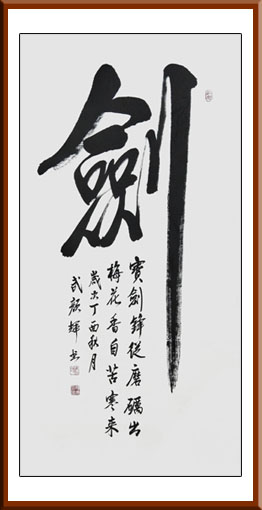 劍
寶劍鋒從磨礪出
梅花香自苦寒来
歲次丁酉秋月
武顏輝书